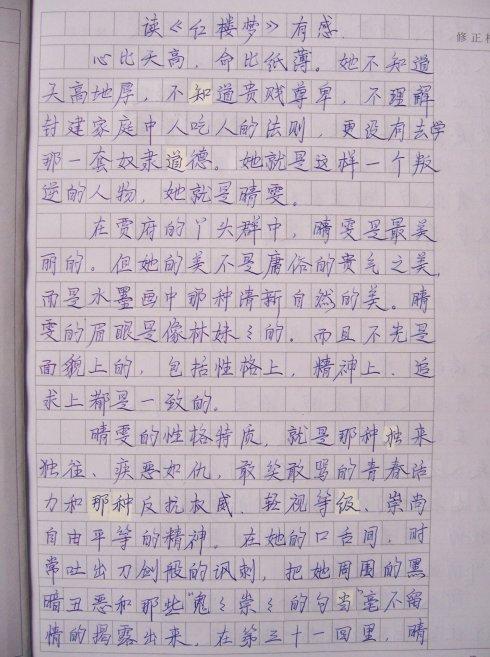 读《红楼梦》有感
修正
心比天高，命比纸薄。她不知道
天高地厚，不知道贵贱尊卑，不理解
封建家庭中人吃人的法则，更没有去学
那一套奴隶道德。她就是这样一个叛
逆的人物，她就是晴雯。
在贾府的丫头群中，晴雯是最美
丽的。但她的美不是庸俗的贵气之美，
而是水墨画中那种清新自然的美。晴
雯的眉眼是像林妹々的。而且不光是
面貌上的，包括性格上，精神上、追
求上都是一致的。
晴雯的性格特质，就是那种独来
独往、疾恶如仇，敢笑敢骂的青春活
力和那种反抗权威、轻视等级、崇尚
自由平等的精神。在她的口舌间，时
常吐出刀剑般的讽刺，把她周围的黑
暗丑恶和那些"鬼々祟々的勾当"毫不留
情的揭露出来，在第三十一回里，晴